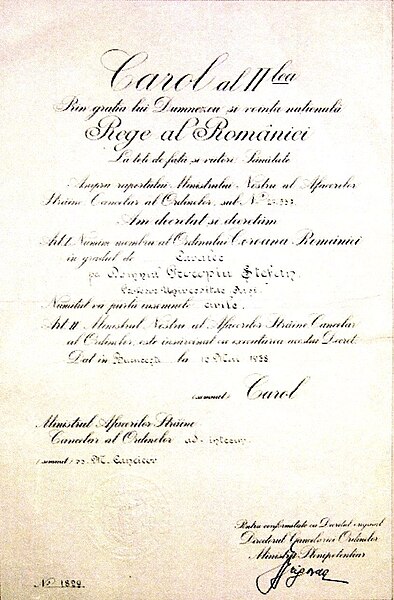 Carol al II lea
Prin grația lui Dumnezeu și voința națională
Rege al României
La toți de față și viitori, Sănătate
Asupra raportului Ministrului Nostru al Afacerilor
Străine Cancelar al Ordinelor, sub No.
Am decretat și decretăm
Art I. Numim membru al Ordinului Coroana României
în gradul de Cavaler
pe Domnul Procopiu Ștefan,
Profesor Universitar, Iași.
Numitul va purta insemnele civile.
Art II. Ministrul Nostru al Afacerilor Străine Cancelar
al Ordinelor, este însărcinat cu executarea acestui Decret.
Dat in București la 10 Mai 1938
(semnat) Carol
Ministrul Afacerilor Străine
Cancelar al Ordinelor ad-interim
(semnat) ss. M. Cancicov
Pentru conformitate cu Decretul original
Directorul Cancelariei Ordinelor
Ministru Plenipotențiar
No 1829